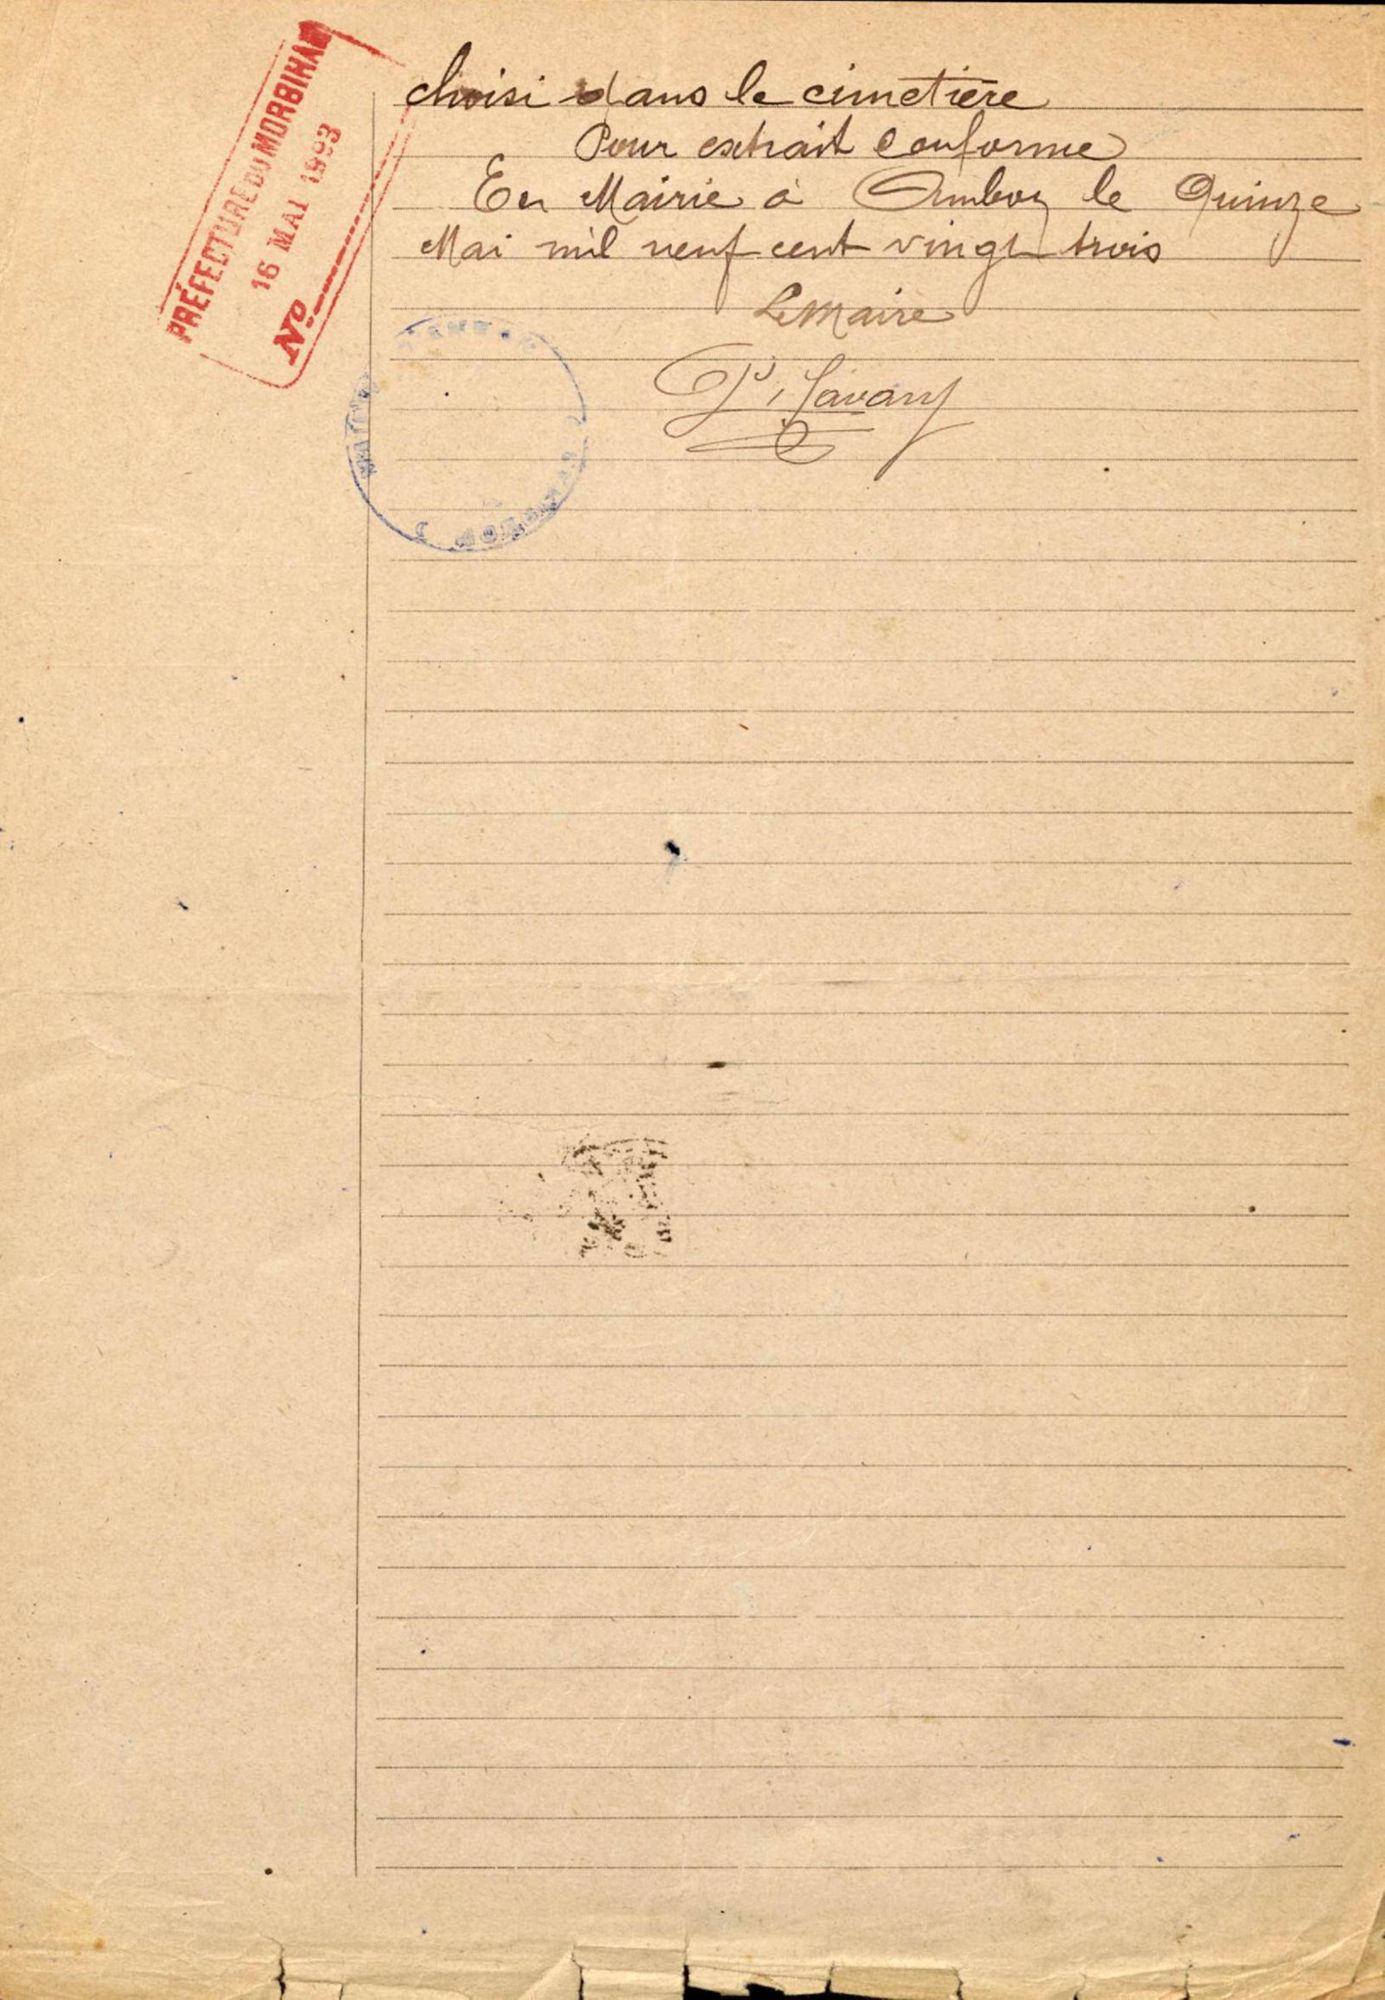 PRÉFECTURE DU MORBIHAN
16 MAI 1923
No
choisi dans le cimetière
Pour extrait conforme
En Mairie à Ambon le Quinze
Mai mil neuf cent vingt trois
Le Maire
P. Savary
MAIRIE D'AMBON
MORBIHAN